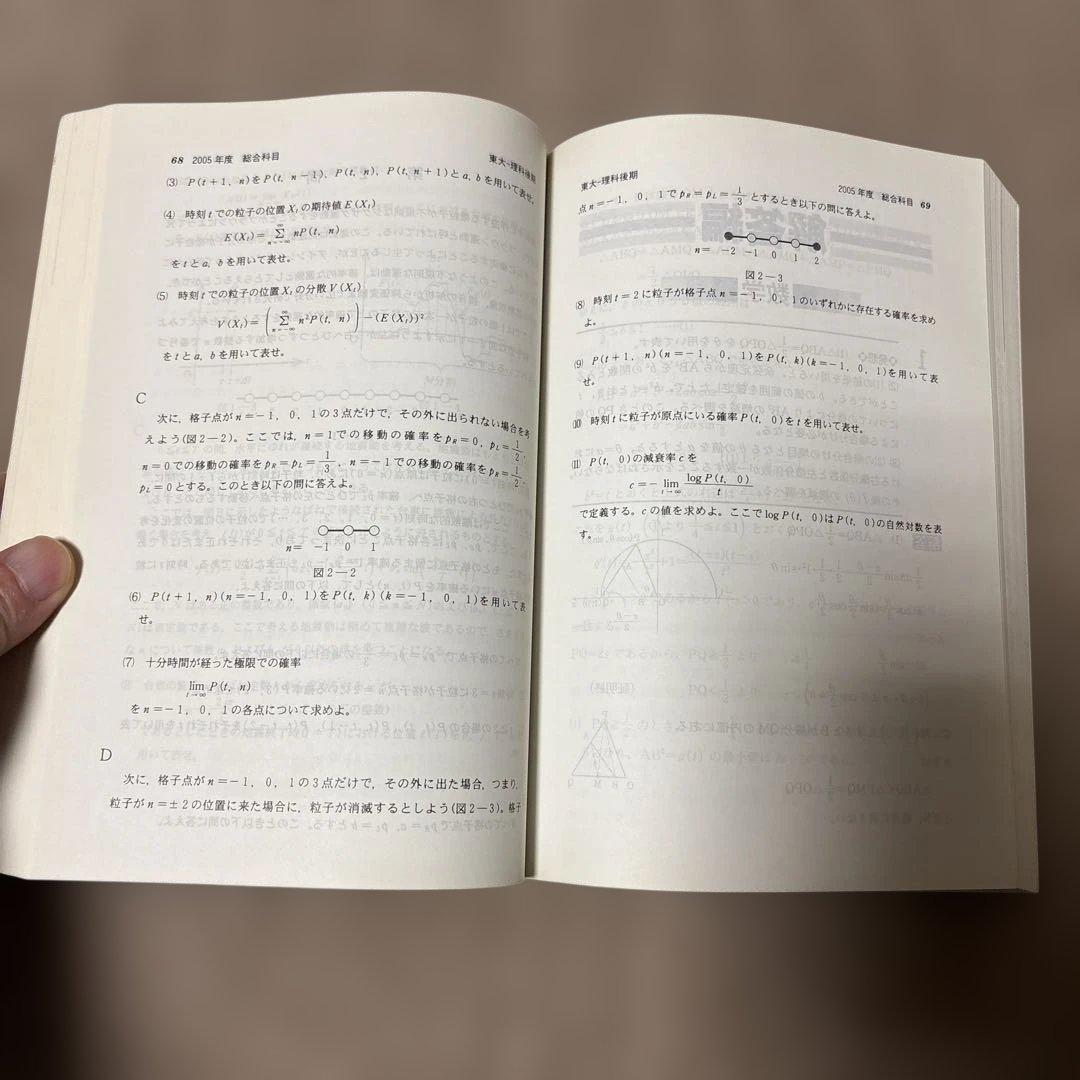 68 2005年度 総合科目
東大-理科後期
(3) P(t+1, n)をP(t, n-1)、P(t, n)、P(t, n+1)とa, bを用いて表せ。
(4) 時刻tでの粒子の位置Xₜの期待値E(Xₜ)
E(Xₜ)=∑_{n=-∞}^{∞} nP(t, n)
をtとa, bを用いて表せ。
(5) 時刻tでの粒子の位置Xₜの分散V(Xₜ)
V(Xₜ)=(∑_{n=-∞}^{∞} n²P(t, n))-(E(Xₜ))²
をtとa, bを用いて表せ。
C
次に, 格子点がn=-1, 0, 1の3点だけで, その外に出られない場合を考
えよう(図2-2)。ここでは, n=1での移動の確率をp_R=0, p_L=1/2,
n=0での移動の確率をp_R=p_L=1/3, n=-1での移動の確率をp_R=1/2,
p_L=0とする。このとき以下の問に答えよ。
n= -1 0 1
図2-2
(6) P(t+1, n)(n=-1, 0, 1)をP(t, k)(k=-1, 0, 1)を用いて表
せ。
(7) 十分時間が経った極限での確率
lim_{t→∞} P(t, n)
をn=-1, 0, 1の各点について求めよ。
D
次に, 格子点がn=-1, 0, 1の3点だけで, その外に出た場合, つまり,
粒子がn=±2の位置に来た場合に, 粒子が消滅するとしよう(図2-3)。格子
東大-理科後期
2005年度 総合科目 69
点n=-1, 0, 1でp_R=p_L=1/3とするとき以下の問に答えよ。
n= -2 -1 0 1 2
図2-3
(8) 時刻t=2に粒子が格子点n=-1, 0, 1のいずれかに存在する確率を求め
よ。
(9) P(t+1, n)(n=-1, 0, 1)をP(t, k)(k=-1, 0, 1)を用いて表
せ。
(10) 時刻tに粒子が原点にいる確率P(t, 0)をtを用いて表せ。
(11) P(t, 0)の減衰率cを
c=-lim_{t→∞} log P(t, 0)/t
で定義する。cの値を求めよ。ここでlog P(t, 0)はP(t, 0)の自然対数を表
す。